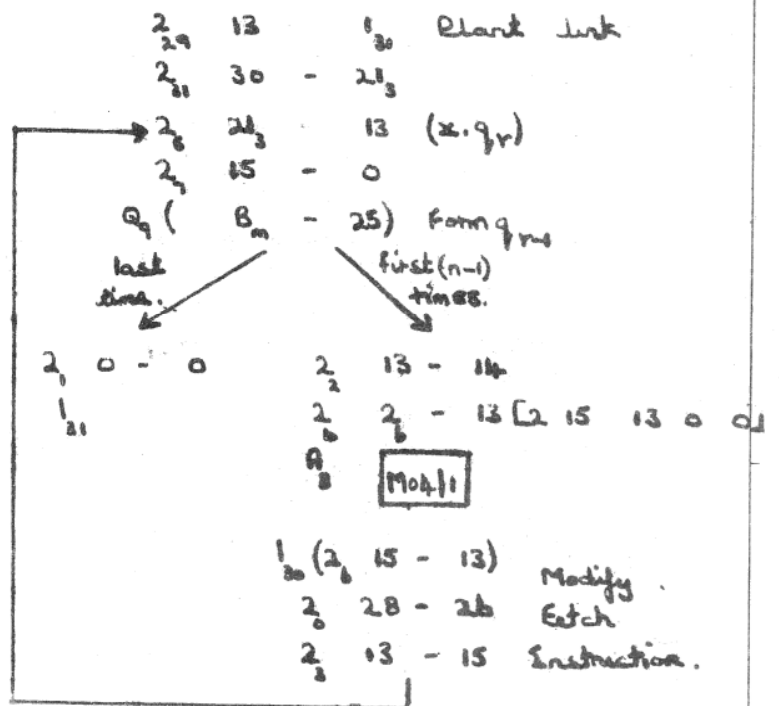 2₂₉ 13 1₃₀ Plant link
2₃₁ 30 - 21₃
2₈ 21₃ 13 (x.qᵣ)
2₇ 15 - 0
Q₉ ( Bₘ - 25) Form q
last first (n-1)
time. times.
2₁ 0 - 0 2₂ 13 - 14
1₃₁ 2₆ 2₆ - 13 [2 15 13 0 0]
A₈ M04/1
1₃₀ (2₆ 15 - 13) Modify.
2₀ 28 - 26 Fetch
2₃ 13 - 15 Instruction.